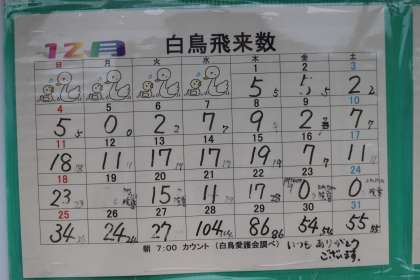 12月 白鳥飛来数
日 月 火 水 木 金 土
1 2 3
5 5 5 5 2 2
4 5 6 7 8 9 10
5 5 0 0 2 2 7 7 9 9 2 2 7 7
11 12 13 14 15 16 17
18 18 11 11 17 17 17 17 19 19 7 7 11 11
18 19 20 21 22 23 24
23 23 15 15 11 11 17 28 0 0
25 26 27 28 29 30 31
34 24 27 27 104 104 86 86 54 54 55 55
朝 7:00 カウント (白鳥愛護会調べ) いつも ありがとう
ございます。